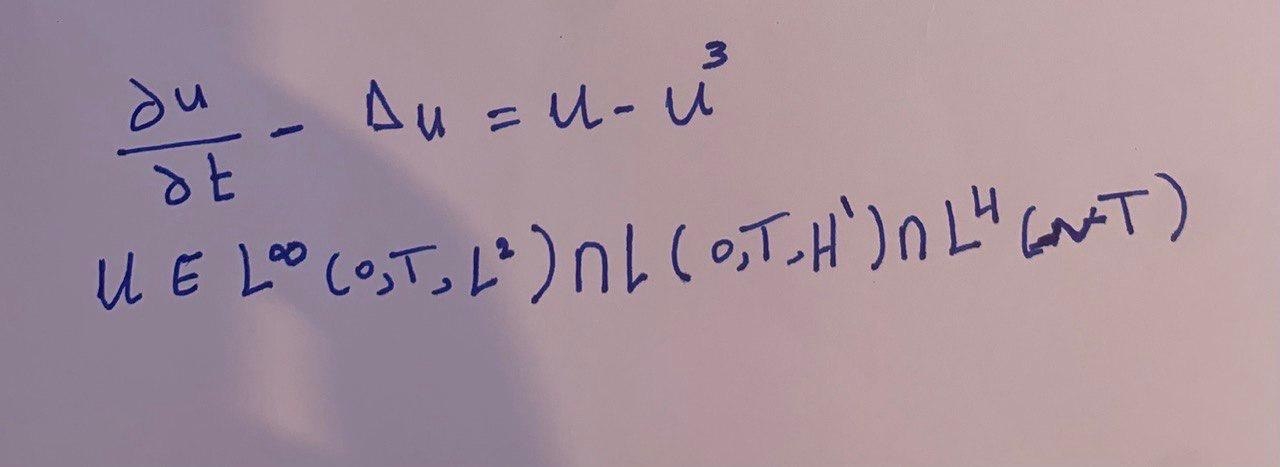 ∂u/∂t - Δu = u - u³
u ∈ L^∞(0,T,L²)∩L(0,T,H¹)∩L⁴(T)